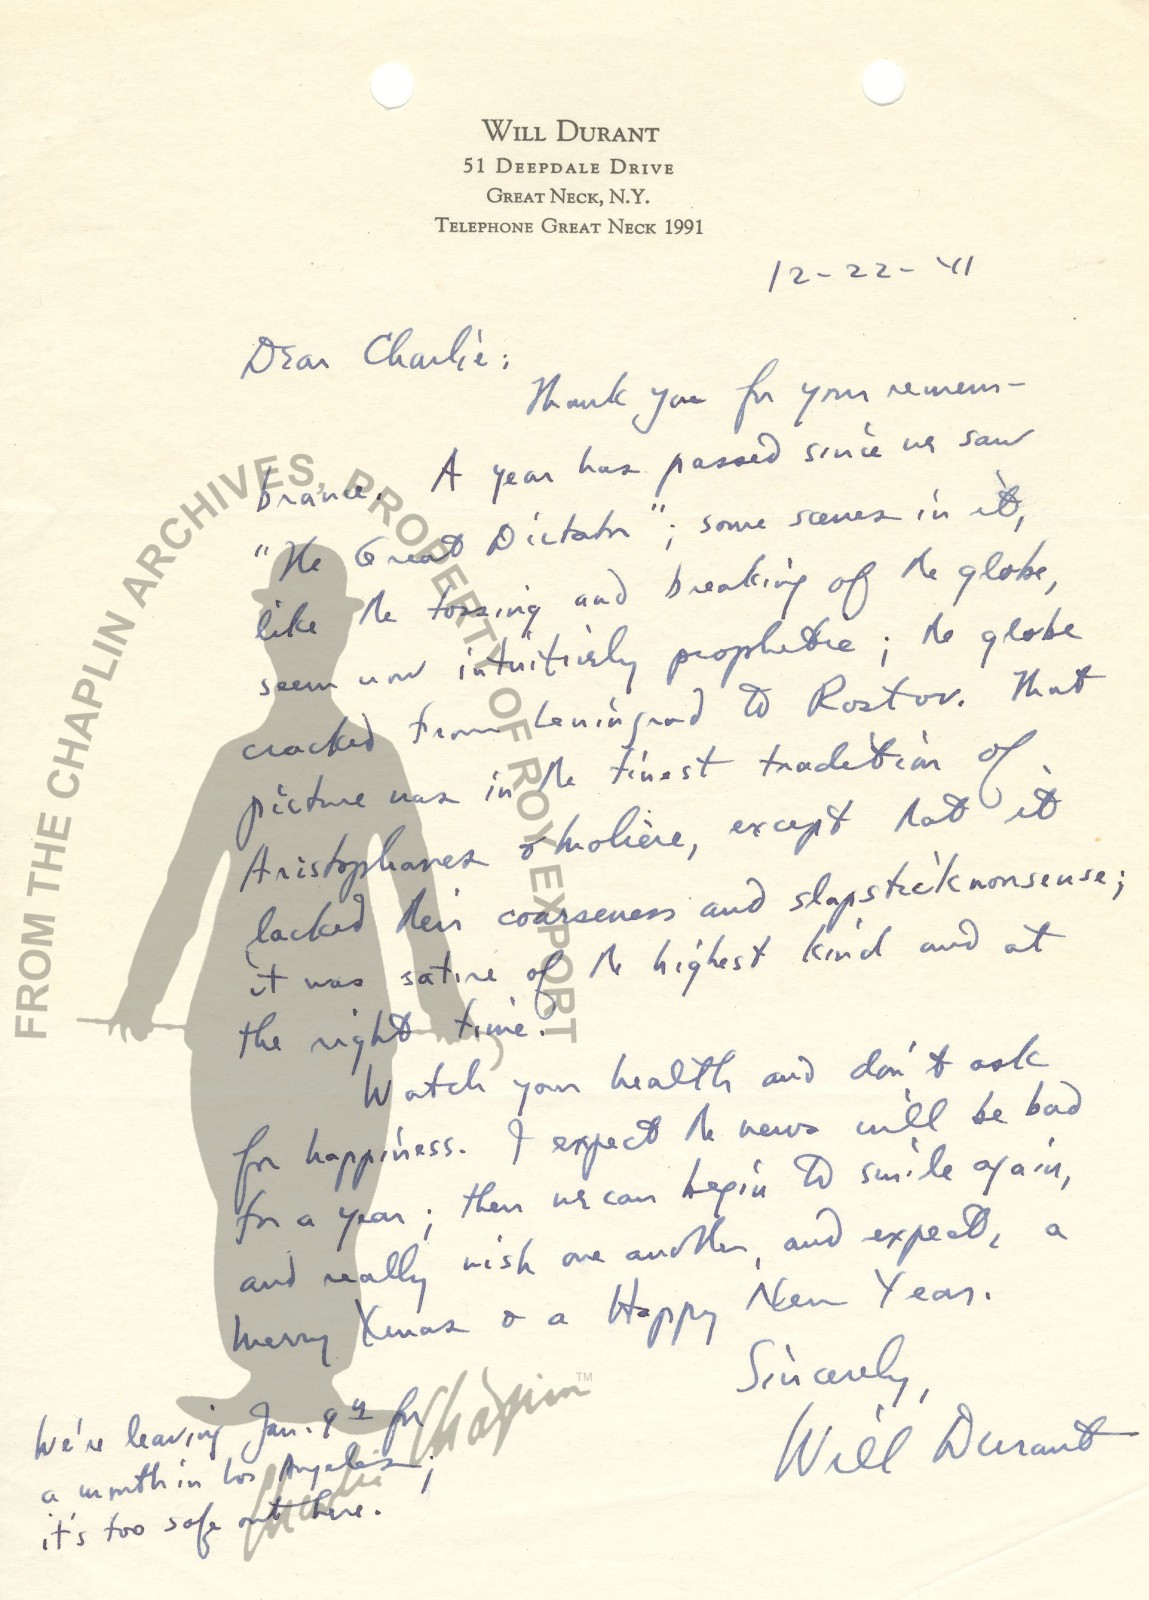 WILL DURANT
51 DEEPDALE DRIVE
GREAT NECK, N.Y.
TELEPHONE GREAT NECK 1991
12-22-'41
Dear Charlie:
Thank you for your remem-
brance. A year has passed since we saw
"The Great Dictator"; some scenes in it,
like the tossing and breaking of the globe,
seem now intuitively prophetic; the globe
cracked from Leningrad to Rostov. That
picture was in the finest tradition of
Aristophanes & Molière, except that it
lacked their coarseness and slapstick nonsense;
it was satire of the highest kind and at
the right time.
Watch your health and don't ask
for happiness. I expect the news will be bad
for a year; then we can begin to smile again,
and really wish one another, and expect, a
Merry Xmas & a Happy New Year.
Sincerely,
Will Durant
We're leaving Jan. 9th for
a month in Los Angeles;
it's too safe out here.
FROM THE CHAPLIN ARCHIVES, PROPERTY OF ROY EXPORT
Charlie Chaplin™